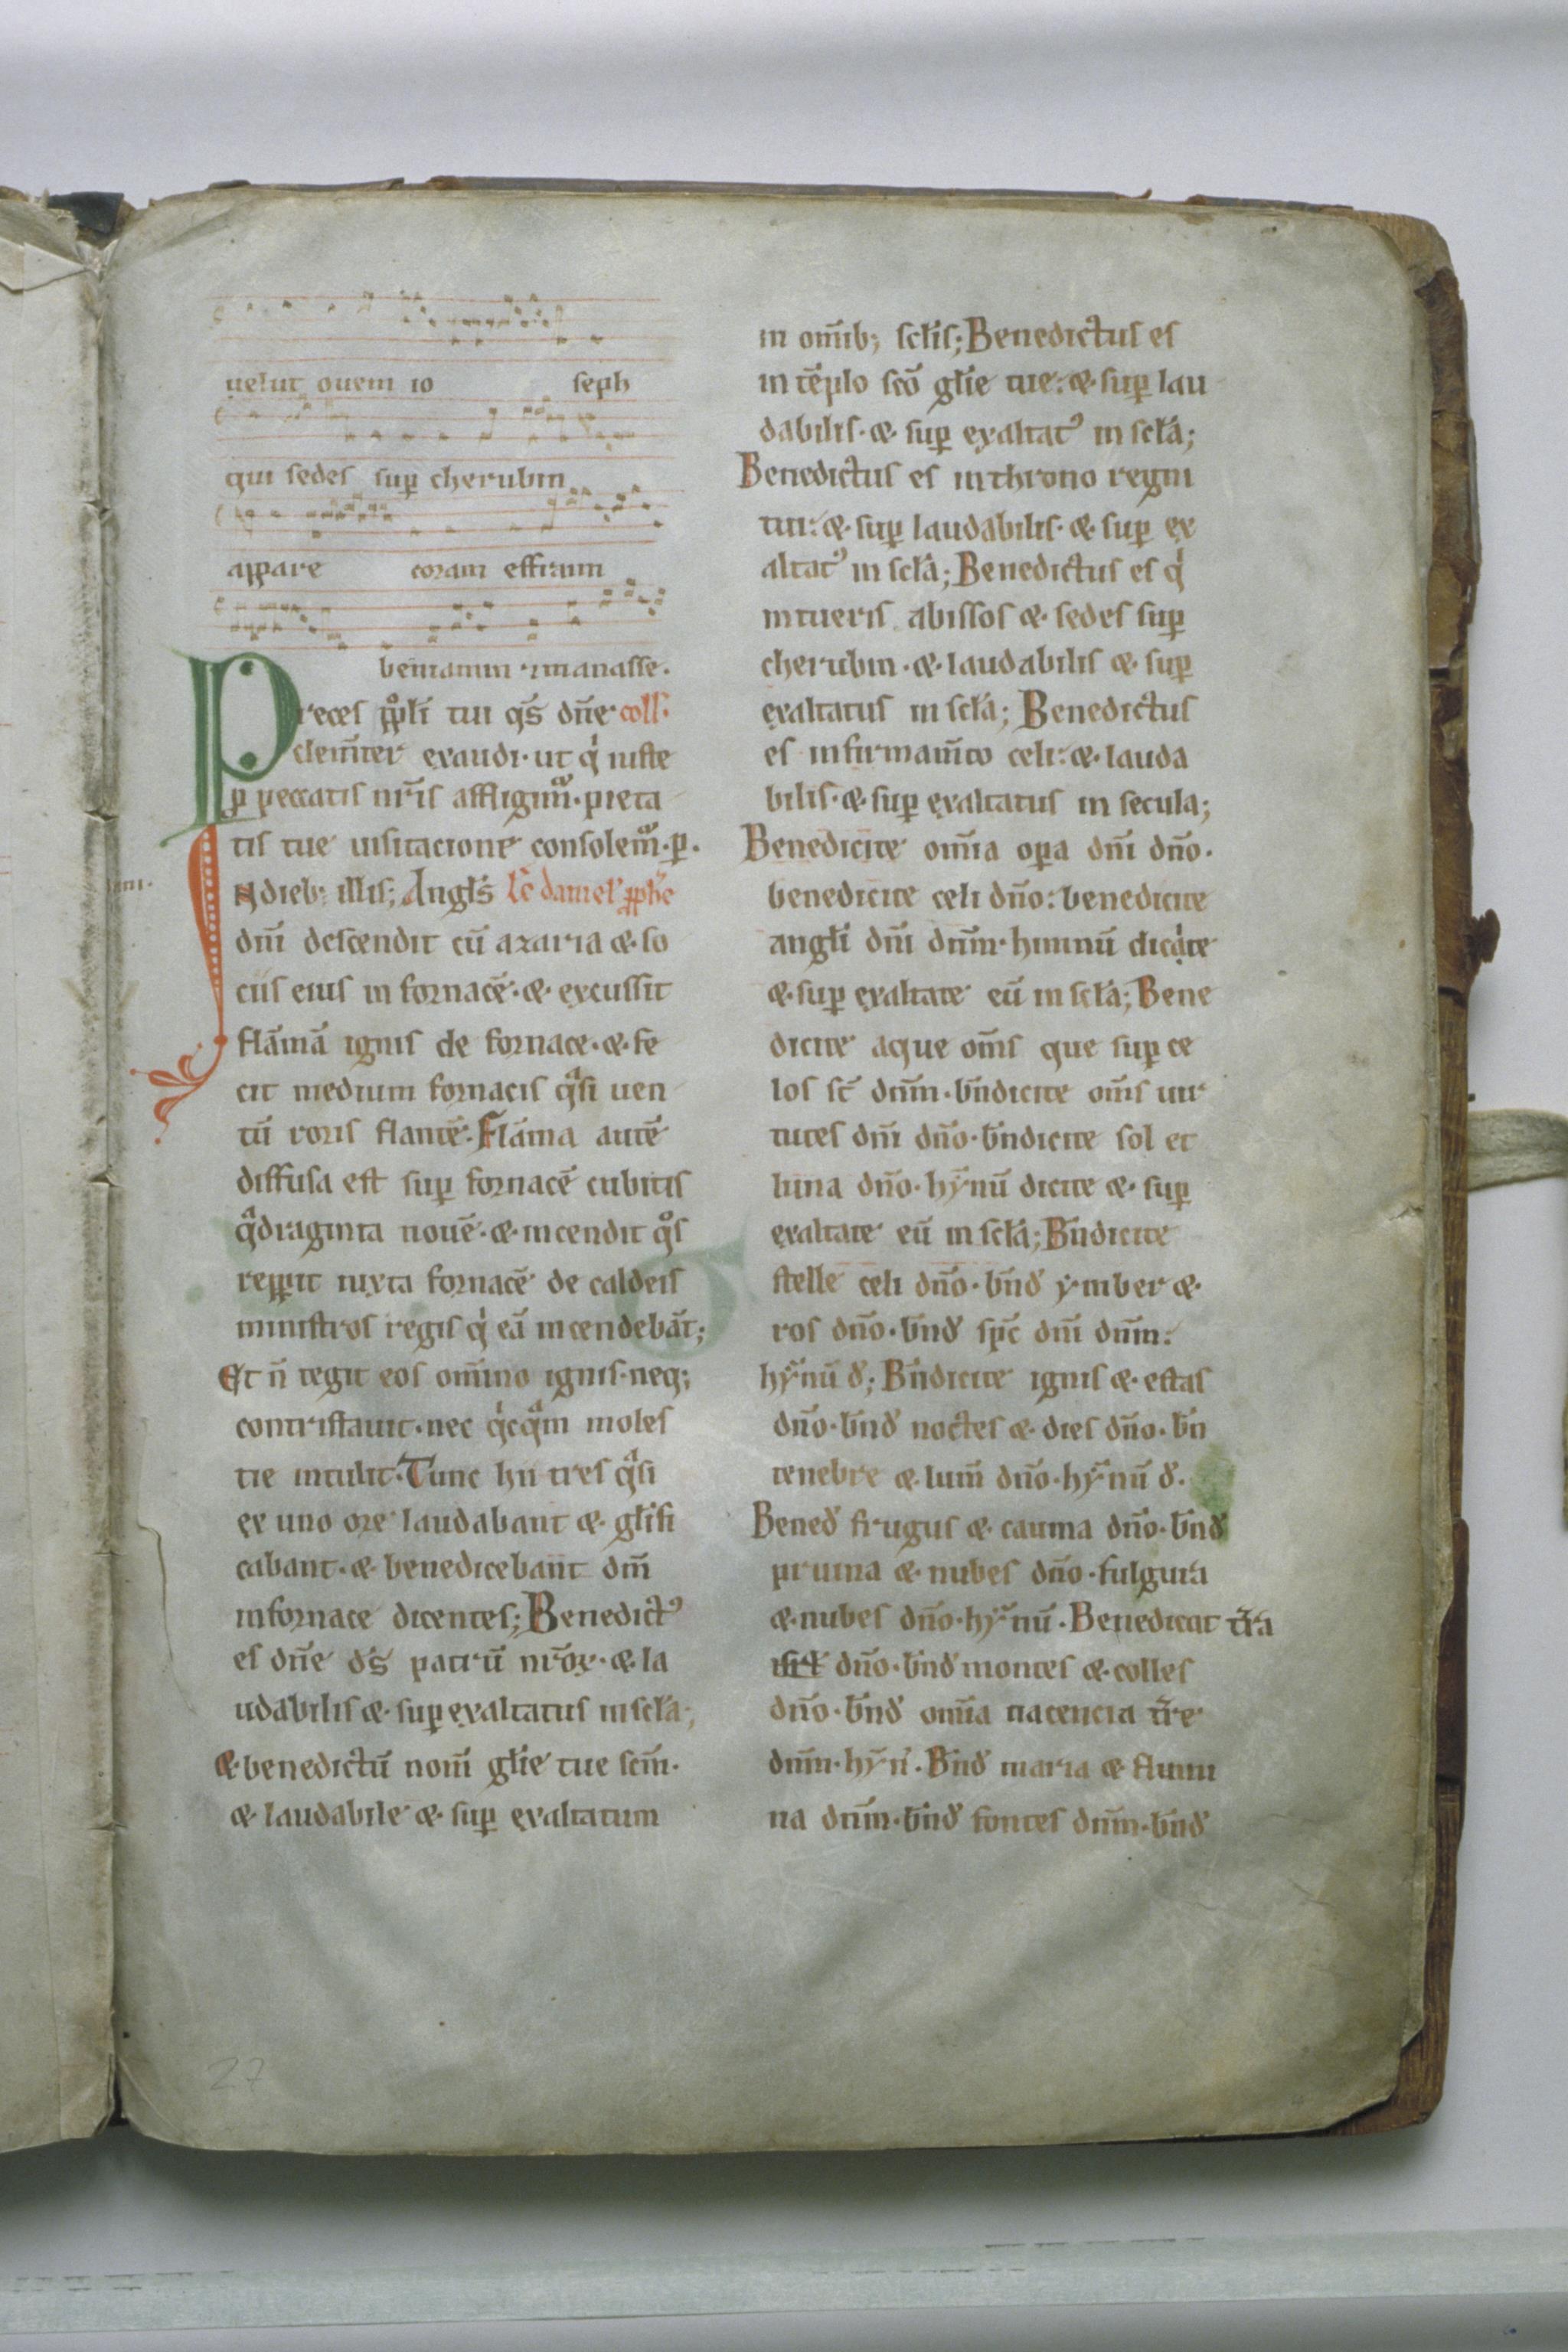 uelut ouem io seph
qui sedes sup cherubin
appare coram effraim
beniamin ⁊ manasse.
Preces ppłi tui qs̄ dn̄e coll.
clemt̄er exaudi. ut qi iuste
p peccatis nr̄is affligimᷣ. pieta
tis tue uisitatione consolemᷣ. p.
In dieb; illis; Angls̄ Lc̄ daniel' pphe
dn̄i descendit cū azaria & so
ciis eius in fornacē. & excussit
flāmā ignis de fornace. & fe
cit medium fornacis qᵃsi uen
tū roris flantē. Flāma autē
diffusa est sup fornacē cubitis
qᵃdraginta nouē. & incendit qᵒs
repperit iuxta fornacē de caldeis
ministros regis qi eā incendebāt;
Et n̄ tegit eos om̄ino ignis. neq;
contristauit. nec qⁱcqᵃm moles
tie intulit. Tunc hii tres qᵃsi
ex uno ore laudabant & glīfi
cabant. & benedicebant dm̄
in fornace dicentes; Benedict⁹
es dn̄e ds̄ patrū nr̄oꝝ. & la
udabilis & sup exaltatus in scła;
& benedictū nom̄ glīe tue scm̄.
& laudabile & sup exaltatum
in om̄ib; scłis; Benedictus es
in tēplo scō glīe tue: & sup lau
dabilis. & sup exaltat⁹ in scła;
Benedictus es in throno regni
tui: & sup laudabilis. & sup ex
altat⁹ in scła; Benedictus es qi
intueris abissos & sedes sup
cherubin. & laudabilis & sup
exaltatus in scła; Benedictus
es in firmam̄to celi: & lauda
bilis. & sup exaltatus in secula;
Benedicite om̄ia opa dn̄i dn̄o.
benedicite celi dn̄o: benedicite
angłi dn̄i dn̄m. himnū dicite
& sup exaltate eū in scła; Bene
dicite aque om̄s que sup ce
los st̄ dn̄m. bn̄dicite om̄s uir
tutes dn̄i dn̄o. bn̄dicite sol et
luna dn̄o. hȳnū dicite & sup
exaltate eū in scła; Bn̄dicite
stelle celi dn̄o. bn̄d ymber &
ros dn̄o. bn̄d spc̄ dn̄i dn̄m.
hȳnū d; Bn̄dicite ignis & estas
dn̄o. bn̄d noctes & dies dn̄o. bn̄
tenebre & lum̄ dn̄o. hȳnū d.
Bened frugus & cauma dn̄o. bn̄d
pruina & nubes dn̄o. fulgura
& nubes dn̄o. hȳnū. Benedicat tr̄a
dn̄o. bn̄d montes & colles
dn̄o. bn̄d om̄ia nacencia tr̄e
dn̄m. hȳn̄. Bn̄d maria & flumi
na dn̄m. bn̄d fontes dn̄m. bn̄d
27